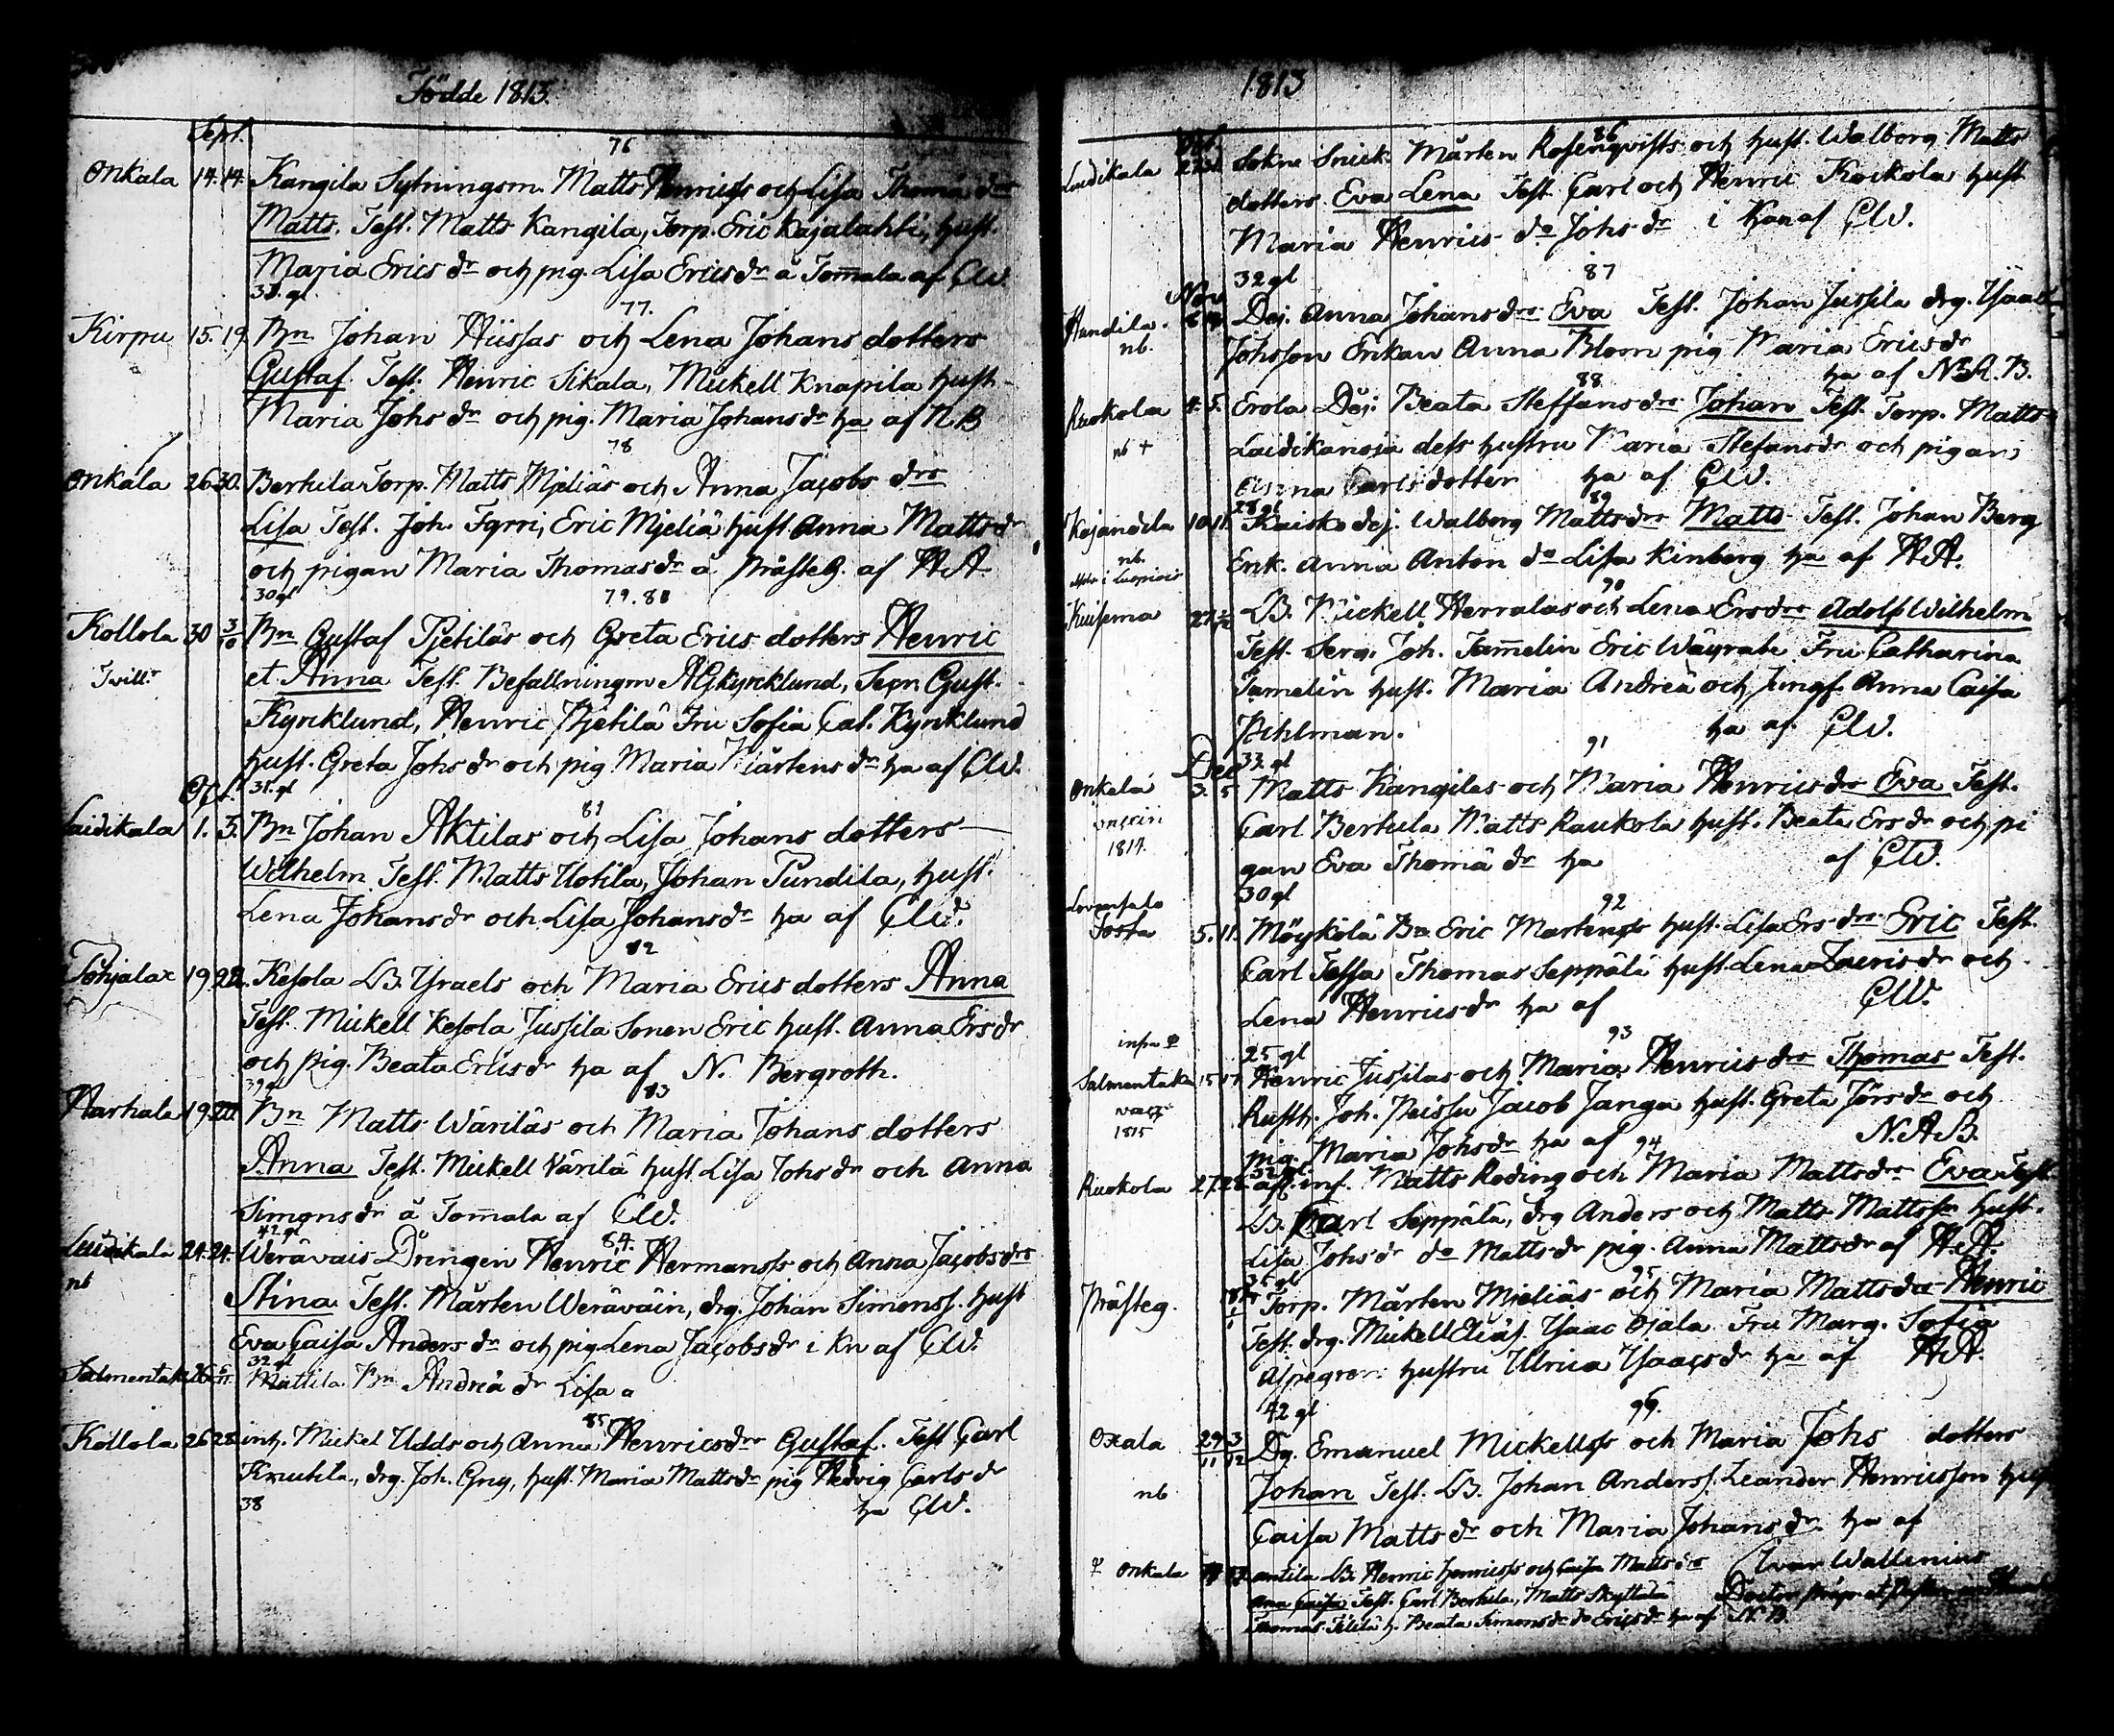 Födde 1813.
Sept.
76
Onkala 14. 14. Kangila Sytningsm. Matts Henricss och Lisa Thomä drs
Matts. Test. Matts Kangila, Torp. Eric Kajalahti, hust.
Maria Erics dr och pig. Lisa Ericsdr å Tom̅ala af CW.
38. gl.
77.
Kirpu 15. 19. Bn Johan Hiissas och Lena Johans dotters
Gustaf. Test. Henric Sikala, Mickell Knapila hust.
Maria Johs dr och pig. Maria Johans dr ha af N B
78
Onkala 26 30. Berkila Torp. Matts Mjeliäs och Anna Jacobs drs
Lisa Test. Joh. Fyrri, Eric Mjeliä hust Anna Matts dr
och pigan Maria Thomas dr å PrästeG. af HA
30 gl
79. 80
Kollola 30 3/10 Bn Gustaf Pjetiläs och Greta Erics dotters Henric
Twill.r et Anna Test. Befallningm AGKyrcklund, Secn Gust.
Kyrcklund, Henric Pjetilä Fru Sofia Cat. Kyrcklund
hust. Greta Johs dr och pig. Maria Mårtens dr ha af CW.
Oct. 31. gl
81
Laidikala 1. 3. Bn Johan Aktilas och Lisa Johans dotters
Wilhelm Test. Matts Uotila, Johan Pundila, hust.
Lena Johans dr och Lisa Johans dr ha af CW.
82
Pohjala 19 22. Kesola LB. Ysraels och Maria Erics dotters Anna
Test. Mickell Kesola Jussila Sonen Eric hust. Anna Ers dr
och pig. Beata Ericsdr ha af N. Bergroth.
39 gl
83
Harhala 19. Bn Matts Wäriläs och Maria Johans dotters
Anna Test. Mickell Värilä hust Lisa Johs dr och Anna
Simons dr å Tom̅ala af CW.
42 gl
84.
Laidikala 24. 24. Werävais Drengen Henric Hermanss och Anna Jacobs drs
nb Stina Test. Mårten Weräväin, drg. Johan Simonss. hust
Eva Caisa Anders dr och pig Lena Jacobsdr i Kn af CW.
32 gl
Salmentaka 26 Mattila Bn Andreä dr Lisa
85
Kollola 26 28 inh. Mickel Udds och Anna Henricsdrs Gustaf. Test Carl
Knutila, drg. Joh. Gry, hust. Maria Matts dr pig Hedvig Carls dr
38 ha CW.
1813
Oct.
86
Laidikala Sokne Snick. Mårten Rosenqvists och hust. Walborg Matts
dotters Eva Lena Test. Carl och Henric Kockola hust
Maria Henrics do Johs dr i Kan af CW.
32 gl
87
Nov
Hundila. nb. Dej. Anna Johans drs Eva Test. Johan Jussila drg. Ysaac
Johsson Enkan Anna Blom pig Maria Ericsdr
ha af N.A.B.
88
Ruokola 4. 5. Erola Dej. Beata Steffans drs Johan Test. Torp. Matts
nb + Laidikanoja dess hustru Maria Stefans dr och pigan
Anna Carls dotter ha af CW.
28 gl
89
Kajandila 10. 11. Kaisko dej. Walborg Mattsdrs Matts Test. Johan Berg
nb. Enk. Anna Anton do Lisa Kinberg ha af HA.
90
Kuisema 27. LB. Mickell Herralas och Lena Ersdrs Adolf Wilhelm
Test. Serg. Joh. Tam̅elin Eric Wäyrabe Fru Catharina
Tamelin hust. Maria Andreä och Jungf. Anna Caisa
Pihlman. ha af CW.
33 gl
91
Dec
Onkala 3. 5 Matts Kangilas och Maria Henrics drs Eva Test.
1814. Carl Berkula Matts Raukola hust. Beata Ers dr och pi
gan Eva Thomä dr ha af CW.
30 gl
92
5. 11. Möykölä Bn Eric Martenss hust. Lisa Ers drs Eric Test.
Carl Jessa Thomas Seppälä hust Lena Zacrisdr och
Lena Henricsdr ha af CW.
25 gl
93
Salmentaka 15 17 Henric Jussilas och Maria Henrics drs Thomas Test.
vacc 1815 Rusth. Joh. Neissu Jacob Janga hust. Greta Jörs dr och
pig. Maria Johsdr ha af N.A.B.
94
Ruokola 27. 28. Matts Roding och Maria Matts drs Eva Test
LB. Carl Seppälä, drg Anders och Matts Mattss hust.
Lisa Johs dr do Matts dr pig. Anna Mattsdr af HA.
35 gl
95
Prästeg. Torp. Mårten Mjeliäs och Maria Matts dr Henric
Test. drg. Mickell Eliäs. Ysaac Ojala Fru Marg. Sofia
Alpegren hustru Ulrica Ysaacs dr ha af HA.
42 gl
96.
Oxala 29/11 3/12 Dg. Emanuel Mickellss och Maria Johs dotters
nb Johan Test. LB. Johan Anderss. Leander Henricsson hust
Caisa Matts dr och Maria Johans dr ha af
Onkala Antila LB. Henric Henricss och Caisa Matts drs Ivar Wallenius
Ana Caisa Test. Carl Berkila, Matts Skyttälä
Thomas Jilila h. Beata Simons dr do Erics dr ha af N B.